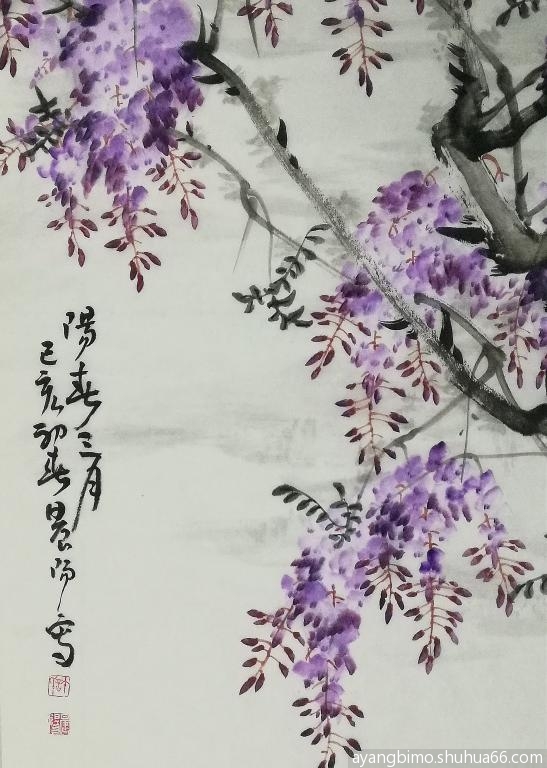 陽春三月
己亥初春晨阳写
ayangbimo.shuhua66.com